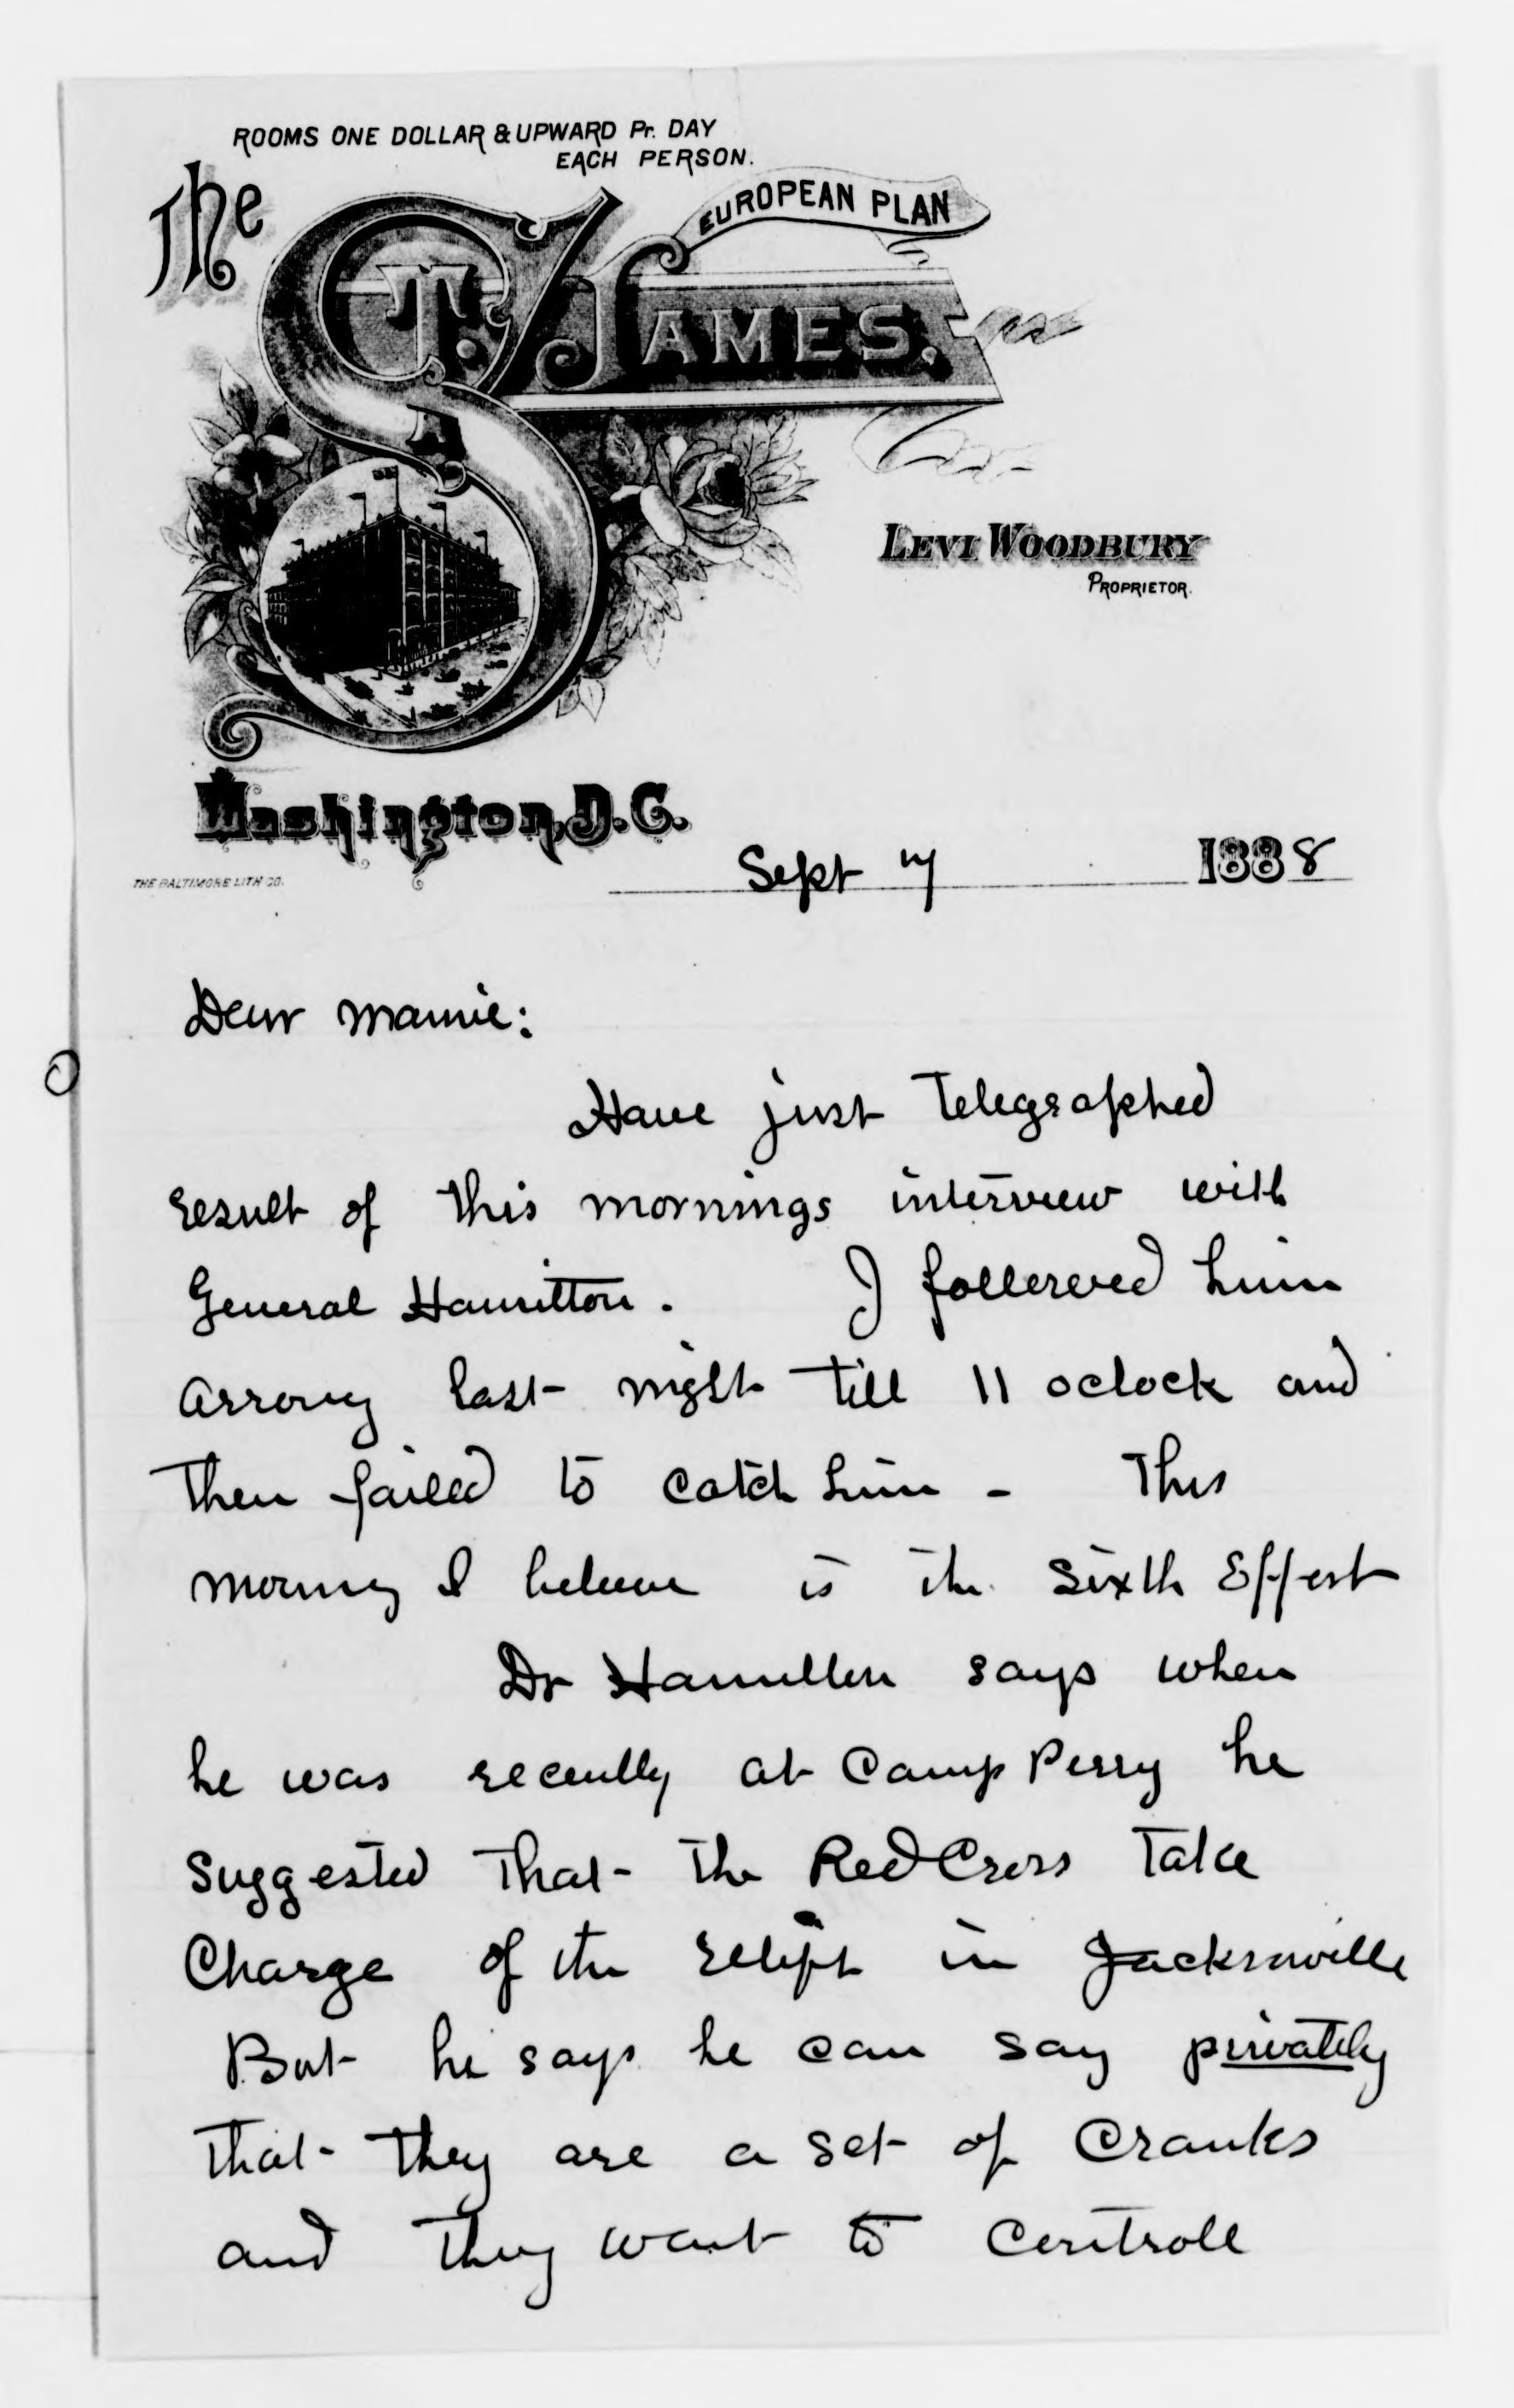 ROOMS ONE DOLLAR & UPWARD Pr. DAY
EACH PERSON.
The
ST. JAMES.
EUROPEAN PLAN
LEVI WOODBURY
PROPRIETOR.
Washington, D.C.
THE BALTIMORE LITH CO.
Sept 17 1888
Dear Mamie:
Have just Telegraphed
result of this mornings interview with
General Hamilton. I followed him
last night till 11 oclock and
then failed to catch him - This
morning I believe is the sixth Effort
Dr Hamilton says when
he was recently at Camp Perry he
suggested that the Red Cross take
Charge of the relief in Jacksonville
But he says he can say privately
that they are a set of Cranks
and they want to Controll